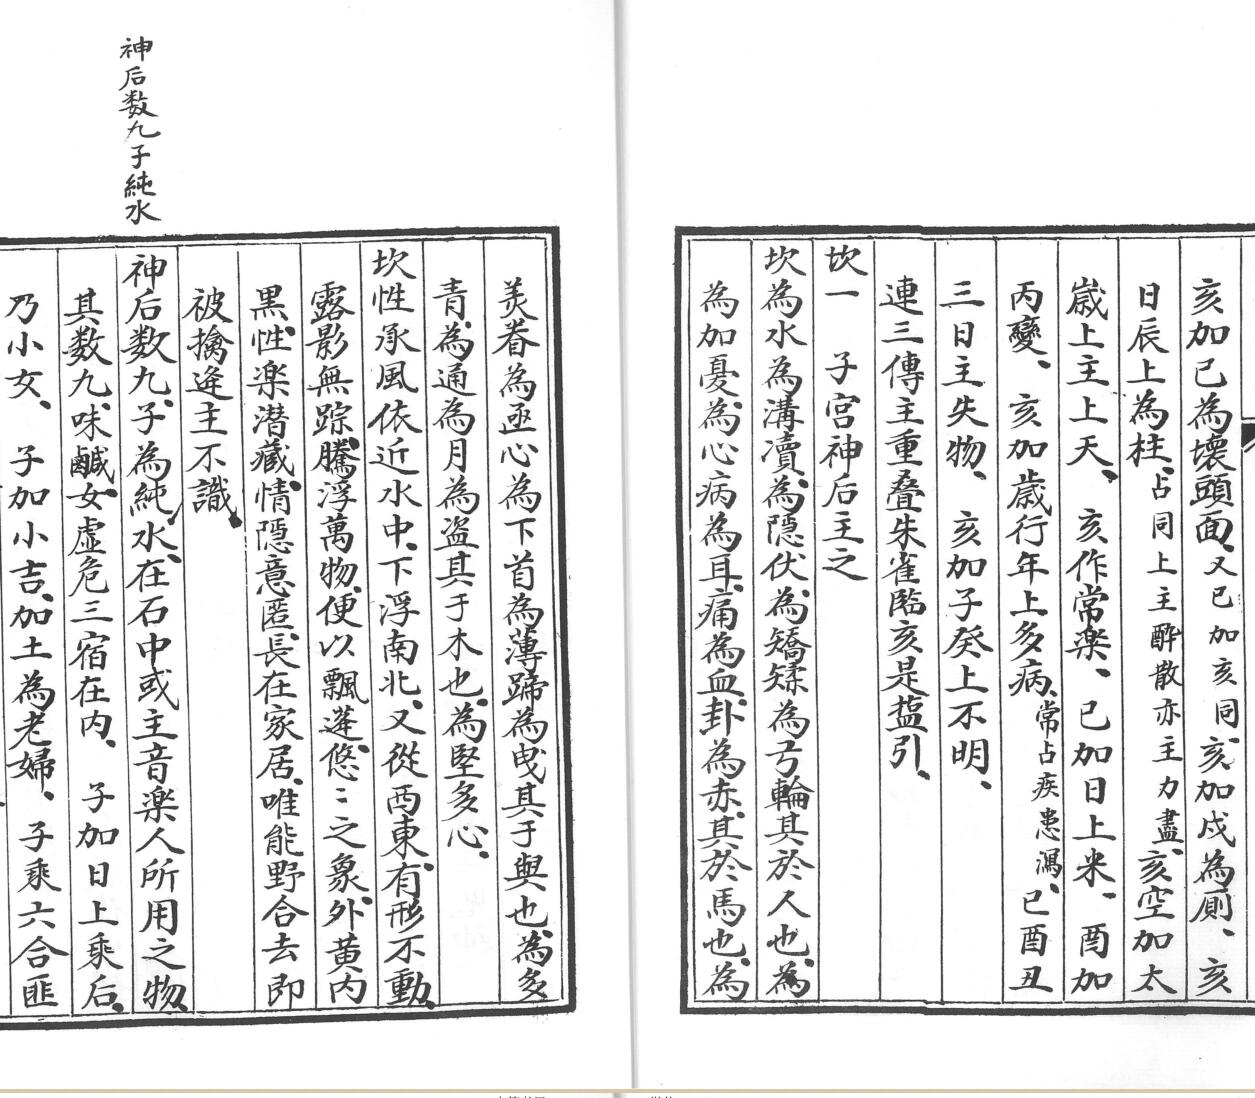 亥加已為壞頭面、又已加亥同、亥加戌為廁、亥
日辰上為柱、占同上主醉散亦主力盡、亥空加太
歲上主上天、亥作常楽、已加日上米、酉加
丙變、亥加歲行年上多病、常占疾患瀉、已酉丑
三日主失物、亥加子癸上不明、
連三傳主重叠朱雀臨亥是塩引、
坎一　子宮神后主之
坎為水為溝瀆、為隠伏、為矯輮為弓輪其於人也、為
為加憂、為心病為耳、痛為血、卦為赤、其於馬也、為
美脊為亟心為下首為薄蹄為曳其于輿也、為多
青、為通為月為盗其于木也、為堅多心、
坎性承風依近水中、下浮南北、又從西東、有形不動、
露影無踪、騰浮萬物、便以飄蓬、悠〻之象、外黄内
黒、性楽潜藏、情隠意匿、長在家居、唯能野合去即
被擒逄主不識、
神后数九子純水
神后数九、子為純水、在石中或主音楽人所用之物、
其数九、味鹹、女虚危三宿在内、子加日上乘后、
乃小女、子加小吉、加土為老婦、子乘六合匪